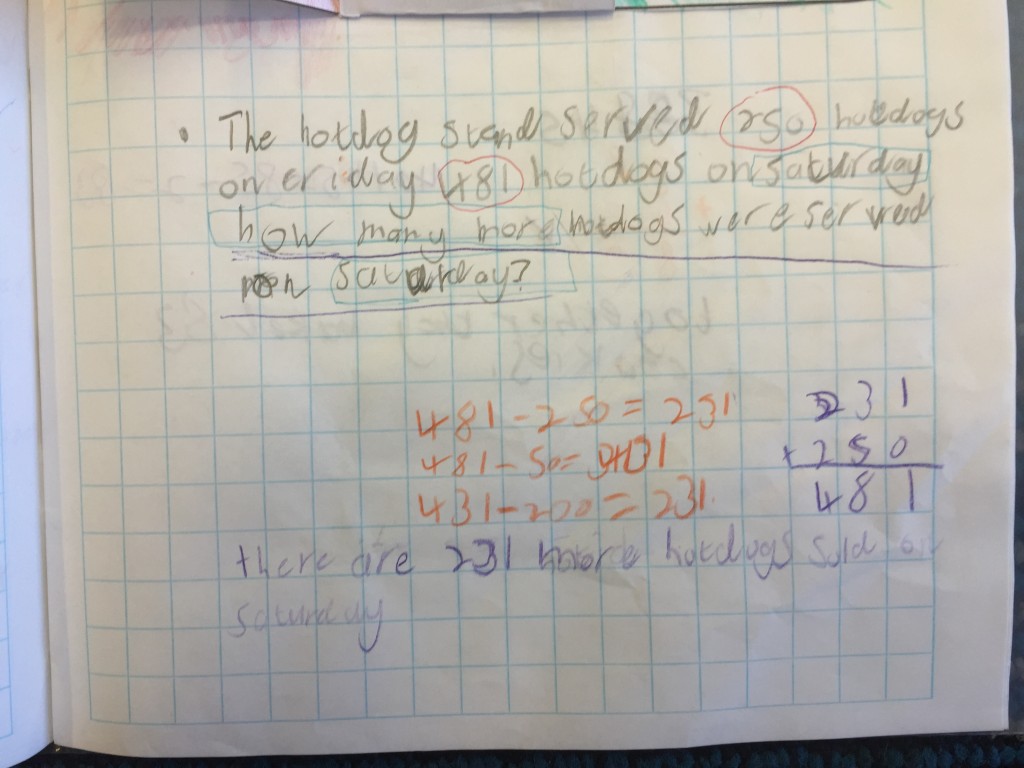 • The hotdog stand served 250 hotdogs
on friday 481 hotdogs on saturday
how many more hotdogs were served
on saturday?
together they
481 - 250 = 231
231
481 - 50 = 431
+ 250
431 - 200 = 231
481
there are 231 more hotdogs sold on
saturday